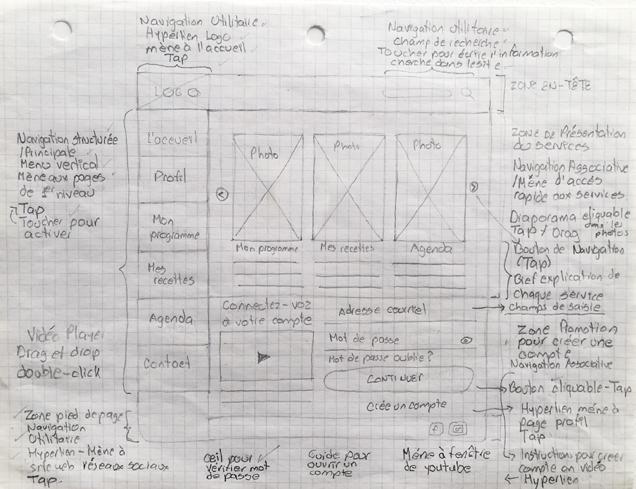 Navigation Utilitaire
Hyperlien Logo
mène à l'accueil
Tap
Navigation Utilitaire
champ de recherche
Toucher pour écrire l'information
cherché dans le site
LOGO
ZONE EN-TÊTE
Navigation structurée
/Principale
Menu vertical
Mène aux pages
de 1er niveau
Tap
Toucher pour
activer
L'accueil
Profil
Mon
programme
Mes
recettes
Agenda
Contact
Photo
Photo
Photo
Mon programme
Mes recettes
Agenda
Zone de Présentation
de services
Navigation Associative
/Mène d'accès
rapide aux services
Diaporama cliquable
dans les
Tap / Drag photos
Bouton de Navigation
(Tap)
Bref explication de
chaque service
Connectez-voz
à votre compte
Adresse courriel
Mot de passe
Mot de passe oublié?
CONTINUER
Crée un compte
champs de saisie
Zone Promotion
pour créer une
compte
Navigation Associative
Bouton cliquable-Tap
Hyperlien mène à
page profil
Tap
Instruction pour créer
compte en vidéo
Hyperlien
Vidéo Player
Drag et drop
double-click
Zone pied de page
Navigation
Utilitaire
Hyperlien-Mène à
site web réseaux sociaux
Tap
œil pour
vérifier mot
de passe
Guide pour
ouvrir un
compte
Mène à fenêtre
de youtube